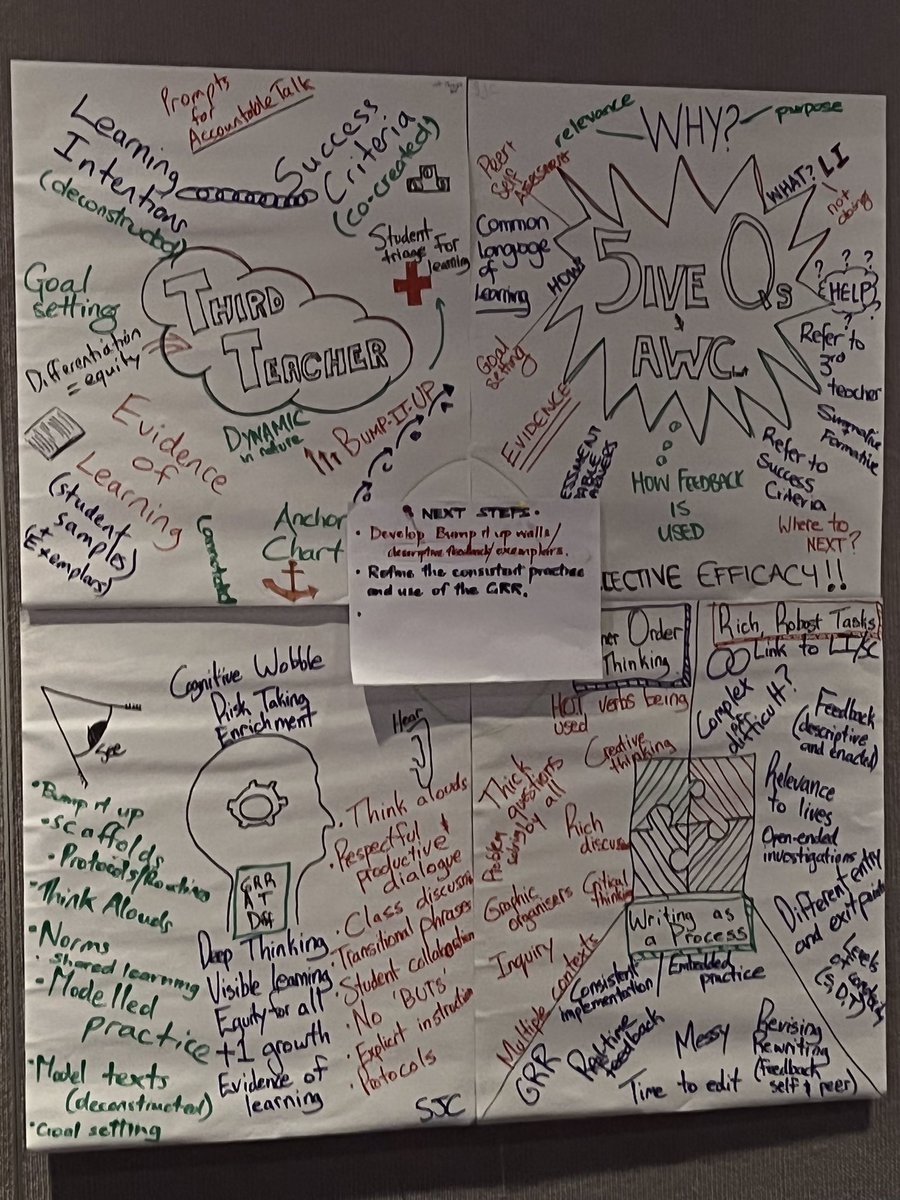 Prompts
for
Accountable Talk
Learning
Intentions
(deconstructed)
Success
Criteria
(co-created)
Student
triage for
learning
Goal
setting
THIRD
TEACHER
Differentiation
= equity
DYNAMIC
in nature
BUMP-IT-UP
Evidence
of
Learning
(student
samples)
(+ Exemplars)
Anchor
Chart
relevance
WHY?
purpose
Peer &
Self
Assessment
WHAT? LI
not
doing
Common
Language
of
Learning
HOW?
5IVE Qs
&
AWC
? ? ?
? HELP ?
?
Refer to
3rd
teacher
Goal
setting
EVIDENCE
Summative
Formative
HOW FEEDBACK
IS
USED
Refer to
Success
Criteria
Where to
NEXT?
LECTIVE EFFICACY!!
NEXT STEPS.
• Develop Bump it up walls/
descriptive feedback/exemplars.
• Refine the consistent practice
and use of the GRR.
•
Cognitive Wobble
Risk Taking
Enrichment
See
• Bump it up
• Scaffolds
• Protocols/Routines
• Think Alouds
• Norms
• shared learning
• Modelled
practice
• Model texts
(deconstructed)
• Goal setting
GRR
AT
Diff
Deep Thinking
Visible learning
Equity for all
+1 growth
Evidence of
learning
Hear
• Think alouds
• Respectful &
productive
dialogue
• Class discussion
• Transitional phrases
• Student collaboration
• No 'BUTS'
• Explicit instruction
• Protocols
SJC
her Order
Thinking
HOT verbs being
used
Creative
thinking
Thick
questions
by all
Problem
solving
Rich
discuss
Graphic
organisers
Critical
thinking
Inquiry
Multiple contexts
Rich, Robust Tasks
Link to LI/SC
Complex
diff
difficult?
Feedback
(descriptive
and enacted)
Relevance
to lives
Open-ended
investigations
Different entry
and exit points
Writing as
a Process
Consistent
implementation
Embedded
practice
GRR
Real-time
feedback
Messy
Time to edit
Revising
Rewriting
(feedback
self & peer)